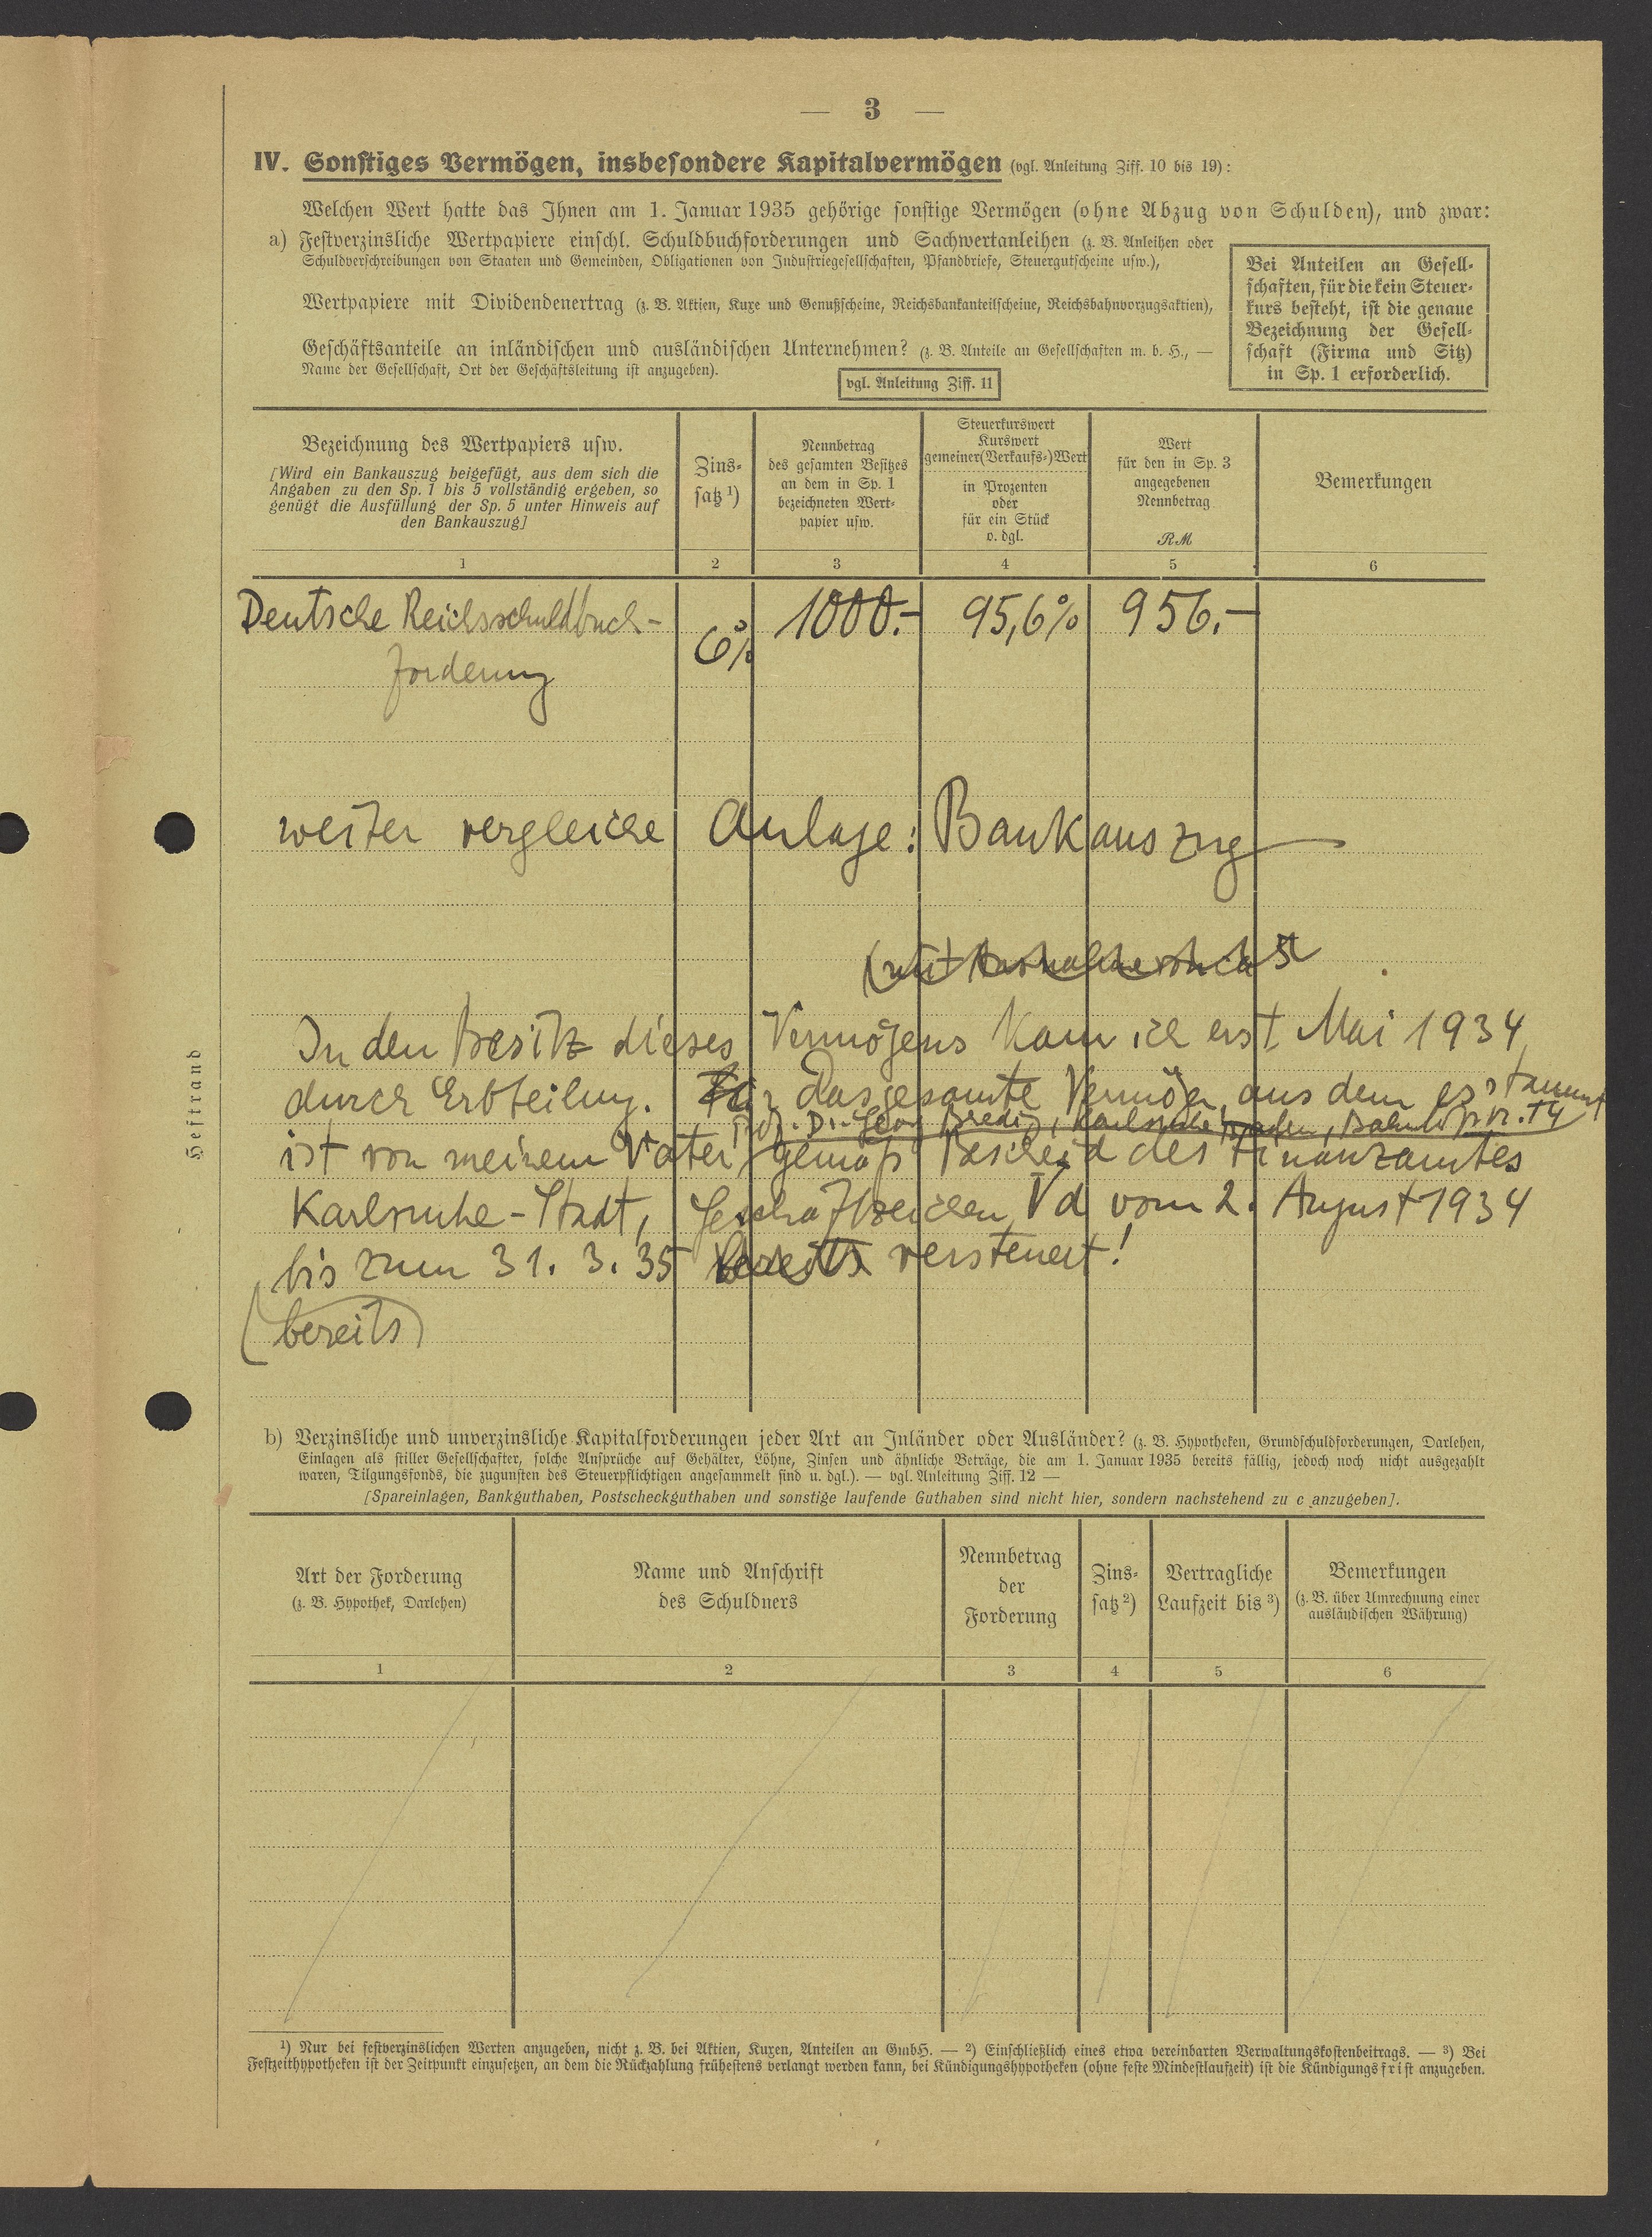 — 3 —
IV. Sonstiges Vermögen, insbesondere Kapitalvermögen (vgl. Anleitung Ziff. 10 bis 19):
Welchen Wert hatte das Ihnen am 1. Januar 1935 gehörige sonstige Vermögen (ohne Abzug von Schulden), und zwar:
a) Festverzinsliche Wertpapiere einschl. Schuldbuchforderungen und Sachwertanleihen (z. B. Anleihen oder
Schuldverschreibungen von Staaten und Gemeinden, Obligationen von Industriegesellschaften, Pfandbriefe, Steuergutscheine usw.),
Wertpapiere mit Dividendenertrag (z. B. Aktien, Kuxe und Genußscheine, Reichsbankanteilscheine, Reichsbahnvorzugsaktien),
Geschäftsanteile an inländischen und ausländischen Unternehmen? (z. B. Anteile an Gesellschaften m. b. H., —
Name der Gesellschaft, Ort der Geschäftsleitung ist anzugeben).
vgl. Anleitung Ziff. 11
Bei Anteilen an Gesell-
schaften, für die kein Steuer-
kurs besteht, ist die genaue
Bezeichnung der Gesell-
schaft (Firma und Sitz)
in Sp. 1 erforderlich.
Bezeichnung des Wertpapiers usw.
[Wird ein Bankauszug beigefügt, aus dem sich die
Angaben zu den Sp. 1 bis 5 vollständig ergeben, so
genügt die Ausfüllung der Sp. 5 unter Hinweis auf
den Bankauszug]
Zins-
satz ¹)
Nennbetrag
des gesamten Besitzes
an dem in Sp. 1
bezeichneten Wert-
papier usw.
Steuerkurswert
Kurswert
gemeiner (Verkaufs-) Wert
in Prozenten
oder
für ein Stück
o. dgl.
Wert
für den in Sp. 3
angegebenen
Nennbetrag
RM
Bemerkungen
1 2 3 4 5 6
Deutsche Reichsschuldbuch- 6% 1000.- 95,6% 956.-
forderung
weiter vergleiche Anlage: Bankauszug
In den Besitz dieses Vermögens kam ich erst Mai 1934
durch Erbteilung. Das gesamte Vermögen, aus dem es stammt
Prof. Dr. Georg Bredig, Karlsruhe Baden, Bahnhofpl. 14
ist von meinem Vater, gemäß Bescheid des Finanzamtes
Karlsruhe-Stadt, Geschäftszeichen Vd vom 2. August 1934
bis zum 31. 3. 35 bereits versteuert!
(bereits)
Heftrand
b) Verzinsliche und unverzinsliche Kapitalforderungen jeder Art an Inländer oder Ausländer? (z. B. Hypotheken, Grundschuldforderungen, Darlehen,
Einlagen als stiller Gesellschafter, solche Ansprüche auf Gehälter, Löhne, Zinsen und ähnliche Beträge, die am 1. Januar 1935 bereits fällig, jedoch noch nicht ausgezahlt
waren, Tilgungsfonds, die zugunsten des Steuerpflichtigen angesammelt sind u. dgl.). — vgl. Anleitung Ziff. 12 —
[Spareinlagen, Bankguthaben, Postscheckguthaben und sonstige laufende Guthaben sind nicht hier, sondern nachstehend zu c anzugeben].
Art der Forderung
(z. B. Hypothek, Darlehen)
Name und Anschrift
des Schuldners
Nennbetrag
der
Forderung
Zins-
satz ²)
Vertragliche
Laufzeit bis ³)
Bemerkungen
(z. B. über Umrechnung einer
ausländischen Währung)
1 2 3 4 5 6
¹) Nur bei festverzinslichen Werten anzugeben, nicht z. B. bei Aktien, Kuxen, Anteilen an GmbH. — ²) Einschließlich eines etwa vereinbarten Verwaltungskostenbeitrags. — ³) Bei
Festzeithypotheken ist der Zeitpunkt einzusetzen, an dem die Rückzahlung frühestens verlangt werden kann, bei Kündigungshypotheken (ohne feste Mindestlaufzeit) ist die Kündigungsfrist anzugeben.